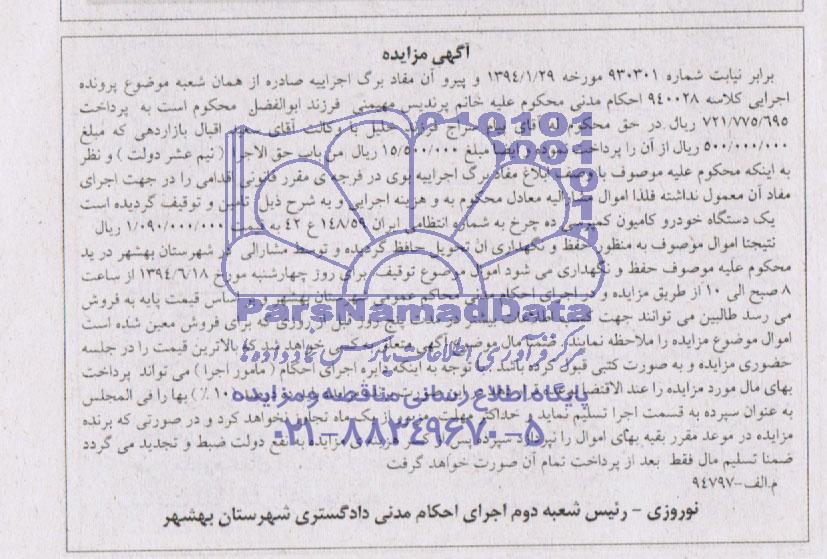 آگهی مزایده
برابر نیابت شماره ۹۳۰۳۰۱ مورخه ۱۳۹٤/۱/۲۹ و پیرو آن مفاد برگ اجراییه صادره از همان شعبه موضوع پرونده
اجرایی کلاسه ۹٤۰۰۲۸ احکام مدنی محکوم علیه خانم پرندیس مهیمنی فرزند ابوالفضل محکوم است به پرداخت
۷۲۱/۷۷۵/۶۹۵ ریال در حق محکوم له آقای پیام سراج فرزند خلیل با وکالت آقای سعید اقبال بازاردهی که مبلغ
۵۰۰/۰۰۰/۰۰۰ ریال از آن را پرداخت نموده و ایضا مبلغ ۱۵/۵۰۰/۰۰۰ ریال من باب حق الاجرا ( نیم عشر دولت ) و نظر
به اینکه محکوم علیه موصوف با وصف ابلاغ مفاد برگ اجراییه بوی در فرجه ی مقرر قانونی اقدامی را در جهت اجرای
مفاد آن معمول نداشته فلذا اموال مشارالیه معادل محکوم به و هزینه اجرایی و به شرح ذیل تامین و توقیف گردیده است
یک دستگاه خودرو کامیون کمپرسی ده چرخ به شماره انتظامی ایران ۱٤۸/۵۹ ع ٤۲ به قیمت ۱/۰۹۰/۰۰۰/۰۰۰ ریال
نتیجتا اموال موصوف به منظور حفظ و نگهداری آن تحویل حافظ گردیده و توسط مشارالی در شهرستان بهشهر در ید
محکوم علیه موصوف حفظ و نگهداری می شود اموال موضوع توقیف برای روز چهارشنبه مورخ ۱۳۹٤/۶/۱۸ از ساعت
۸ صبح الی ۱۰ از طریق مزایده و در اجرای احکام مدنی محاکم عمومی شهرستان بهشهر و بر اساس قیمت پایه به فروش
می رسد طالبین می توانند جهت کسب اطلاعات بیشتر در مدت پنج روز قبل از روزی که برای فروش معین شده است
اموال موضوع مزایده را ملاحظه نمایند. ضمنا مال موضوع آگهی متعلق به کسی خواهد شد که بالاترین قیمت را در جلسه
حضوری مزایده و به صورت کتبی قبول کرده باشد با توجه به اینکه دایره اجرای احکام ( مامور اجرا ) می تواند پرداخت
بهای مال مورد مزایده را عند الاقتضا به وعده قرار دهد در این صورت برنده مزایده باید ده درصد ( ۱۰٪ ) بها را فی المجلس
به عنوان سپرده به قسمت اجرا تسلیم نماید و حداکثر مهلت مزبور از یک ماه تجاوز نخواهد کرد و در صورتی که برنده
مزایده در موعد مقرر بقیه بهای اموال را نپردازد سپرده پس از کسر هزینه ی مزایده به نفع دولت ضبط و تجدید می گردد
ضمنا تسلیم مال فقط بعد از پرداخت تمام آن صورت خواهد گرفت
م.الف-۹٤۷۹۷
نوروزی - رئیس شعبه دوم اجرای احکام مدنی دادگستری شهرستان بهشهر
ParsNamadData
مرکز فرآوری اطلاعات پارس نماد داده ها
پایگاه اطلاع رسانی مناقصه و مزایده
۰۲۱-۸۸۳۴۹۶۷۰-۵